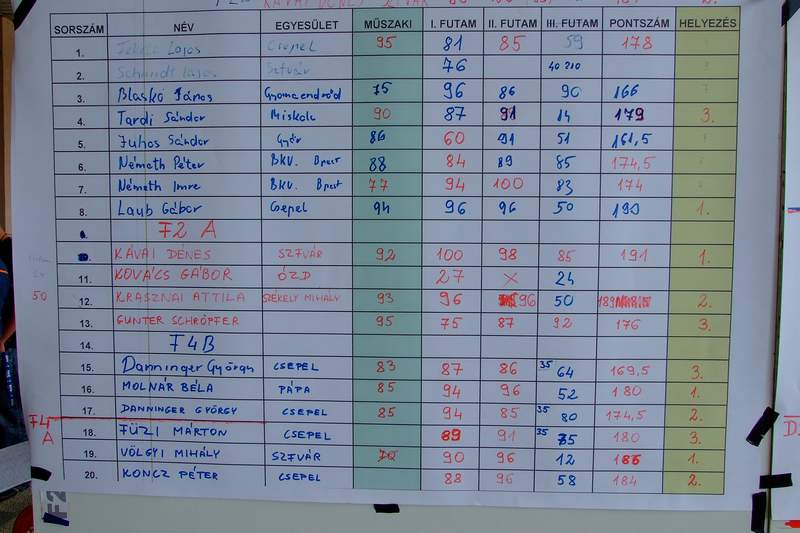 SORSZÁM NÉV EGYESÜLET MŰSZAKI I. FUTAM II. FUTAM III. FUTAM PONTSZÁM HELYEZÉS
1. Lajos Csepel 95 81 85 59 178
2. Schmidt Lajos Sztvár 76 40 210
3. Blaskó János Gyomaendrőd 75 96 86 90 166
4. Tardi Sándor Miskolc 90 87 91 14 179 3.
5. Juhos Sándor Győr 86 60 91 51 161,5
6. Németh Péter BKV. Bpest 88 84 89 85 174,5
7. Németh Imre BKV. Bpest 77 94 100 83 174
8. Laub Gábor Csepel 94 96 96 50 190 1.
F2 A
KÁVAI DÉNES SZFVÁR 92 100 98 85 191 1.
11. KOVÁCS GÁBOR ÓZD 27 X 24
50 12. KRASZNAI ATTILA SZÉKELY MIHÁLY 93 96 96 50 189 2.
13. GUNTER SCHRÖPFER 95 75 87 92 176 3.
14. F4B
15. Danninger György CSEPEL 83 87 86 35 64 169,5 3.
16. MOLNÁR BÉLA PÁPA 85 94 96 52 180 1.
17. DANNINGER GYÖRGY CSEPEL 85 94 85 35 80 174,5 2.
F4 A
18. FÜZI MÁRTON CSEPEL 89 91 35 75 180 3.
19. VÖLGYI MIHÁLY SZFVÁR 70 90 96 12 186 1.
20. KONCZ PÉTER CSEPEL 88 96 58 184 2.
F2